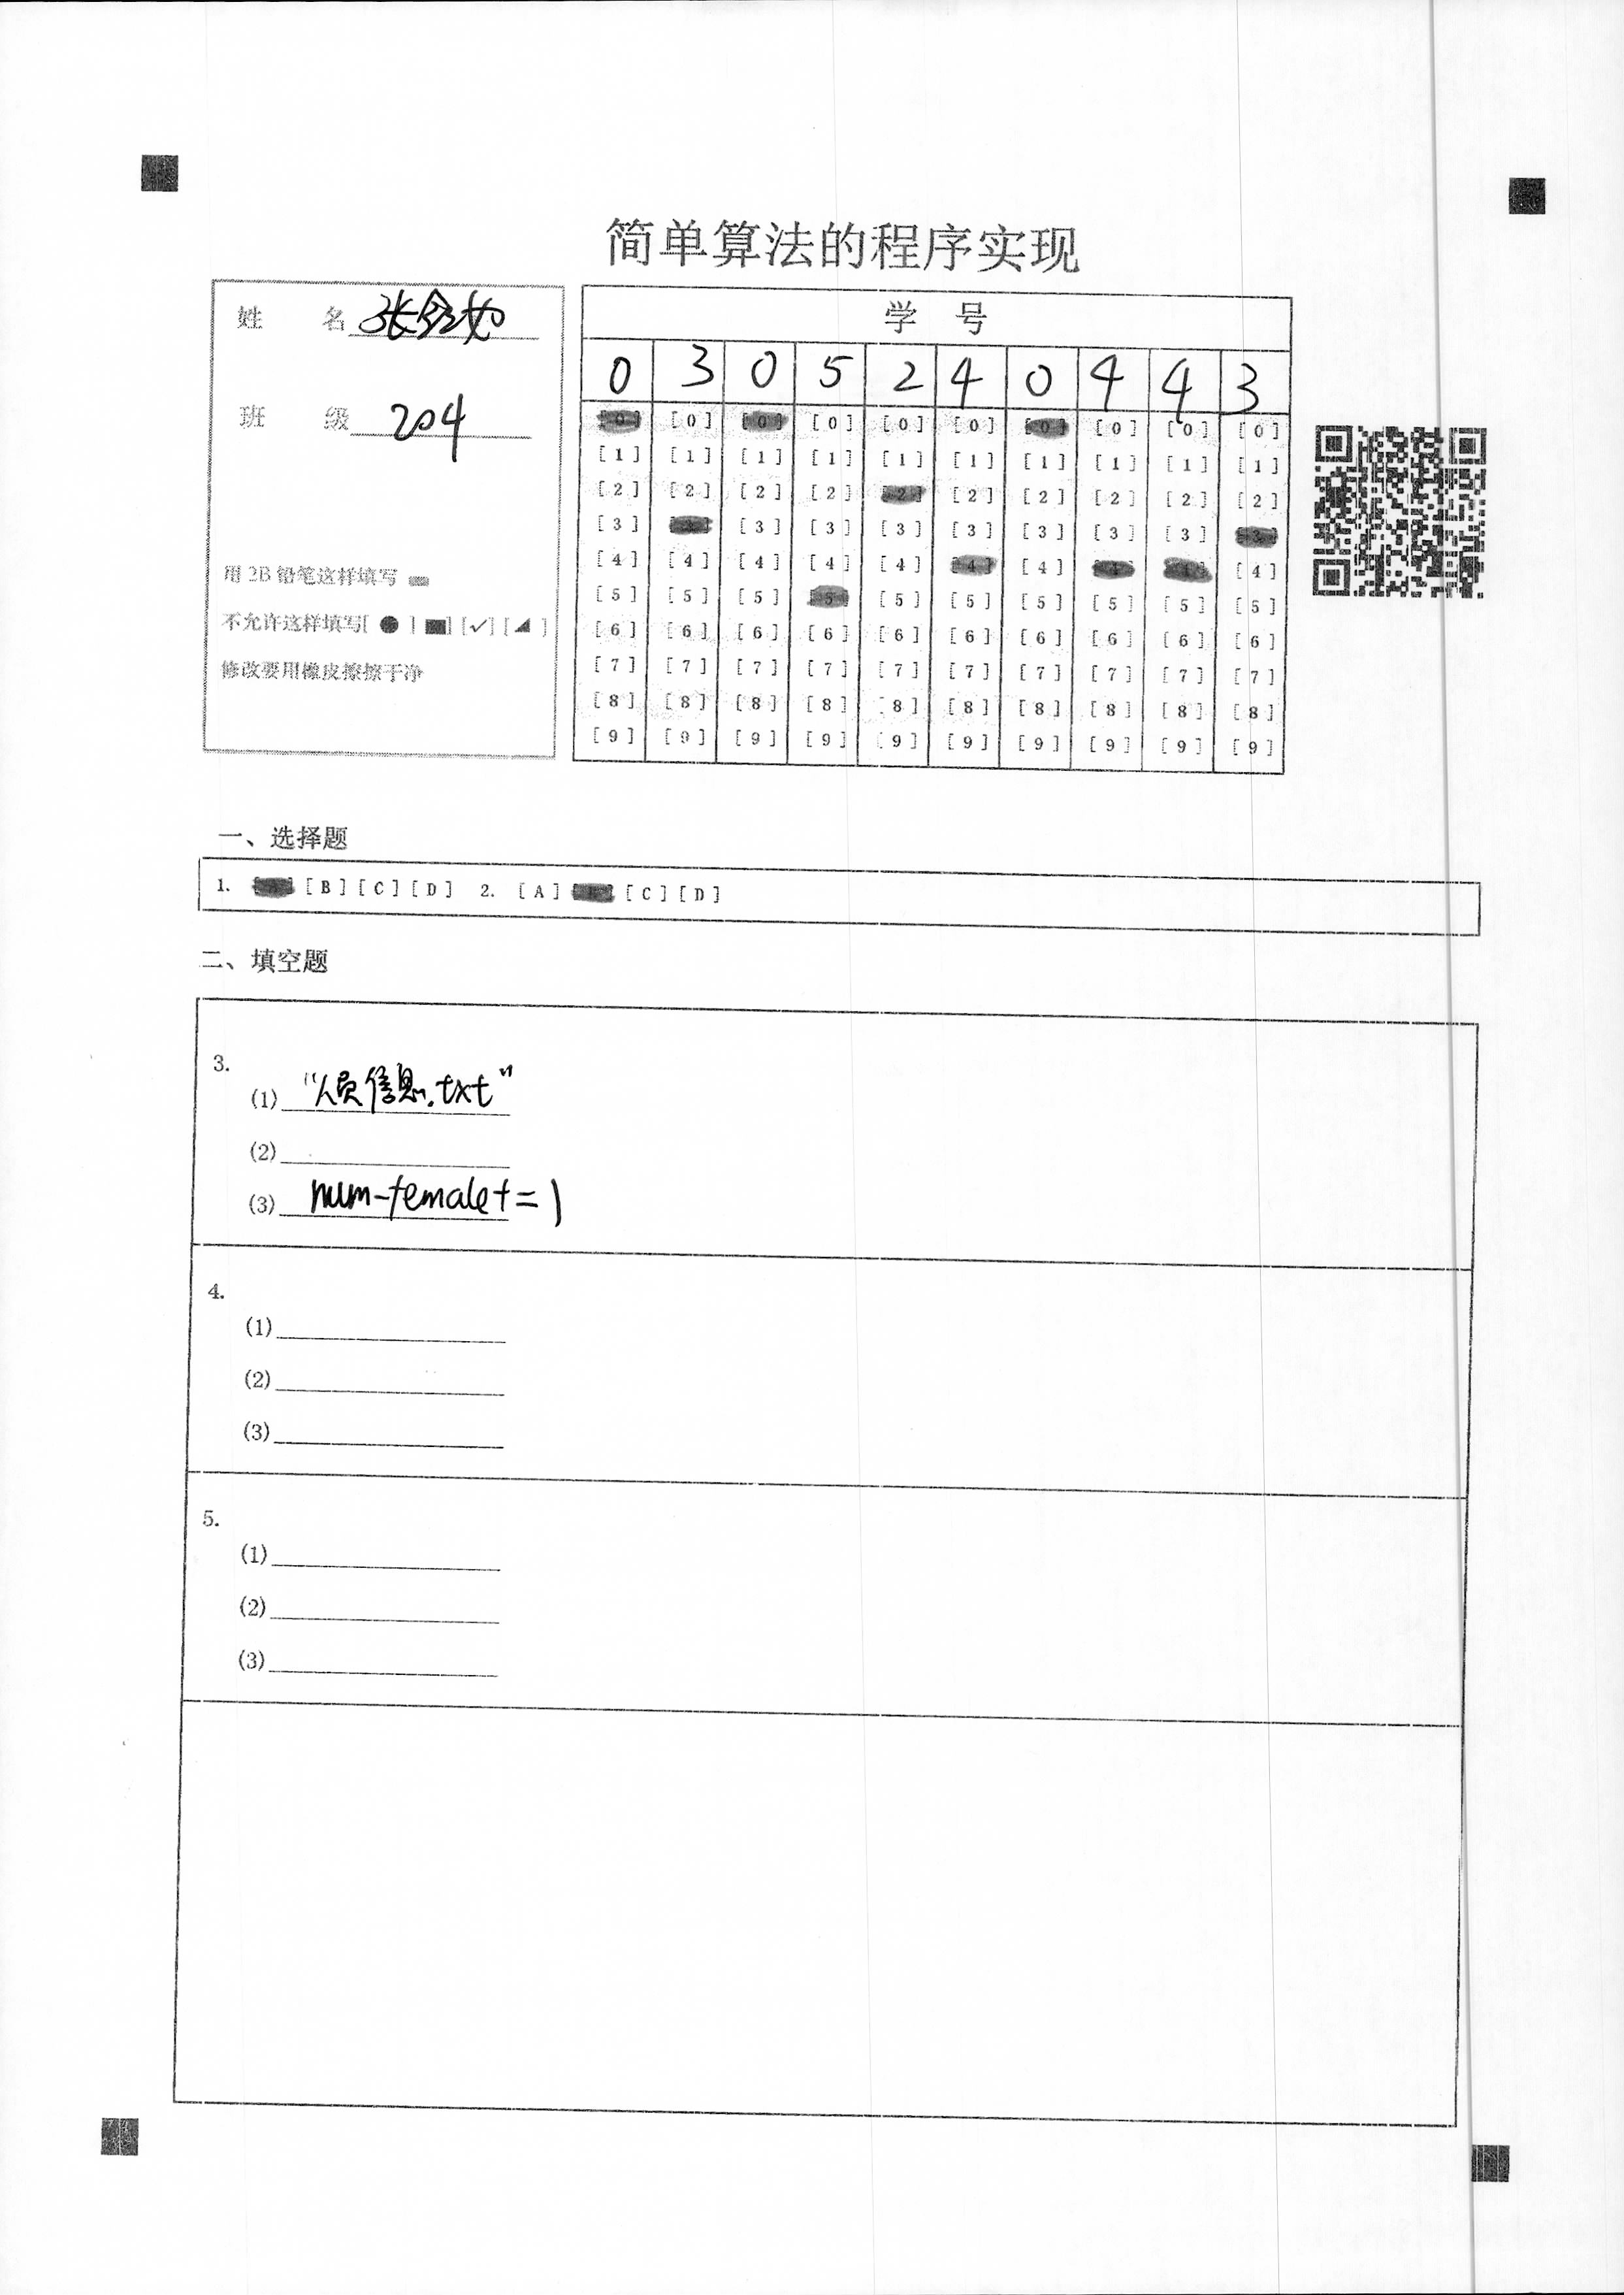 简单算法的程序实现
姓 名 张
班 级 204
用 2B 铅笔这样填写
不允许这样填写[ ● ] [■] [✓] [◢ ]
修改要用橡皮擦擦干净
学 号
0 3 0 5 2 4 0 4 4 3
[0] [0] [0] [0] [0] [0] [0] [0] [0] [0]
[1] [1] [1] [1] [1] [1] [1] [1] [1] [1]
[2] [2] [2] [2] [2] [2] [2] [2] [2] [2]
[3] [3] [3] [3] [3] [3] [3] [3] [3] [3]
[4] [4] [4] [4] [4] [4] [4] [4] [4] [4]
[5] [5] [5] [5] [5] [5] [5] [5] [5] [5]
[6] [6] [6] [6] [6] [6] [6] [6] [6] [6]
[7] [7] [7] [7] [7] [7] [7] [7] [7] [7]
[8] [8] [8] [8] [8] [8] [8] [8] [8] [8]
[9] [9] [9] [9] [9] [9] [9] [9] [9] [9]
一、选择题
1. [A] [B] [C] [D] 2. [A] [B] [C] [D]
二、填空题
3.
(1) "人员信息.txt"
(2)
(3) num-female+=1
4.
(1)
(2)
(3)
5.
(1)
(2)
(3)